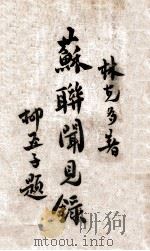 林克多著
蘇聯聞見錄
柳亞子題